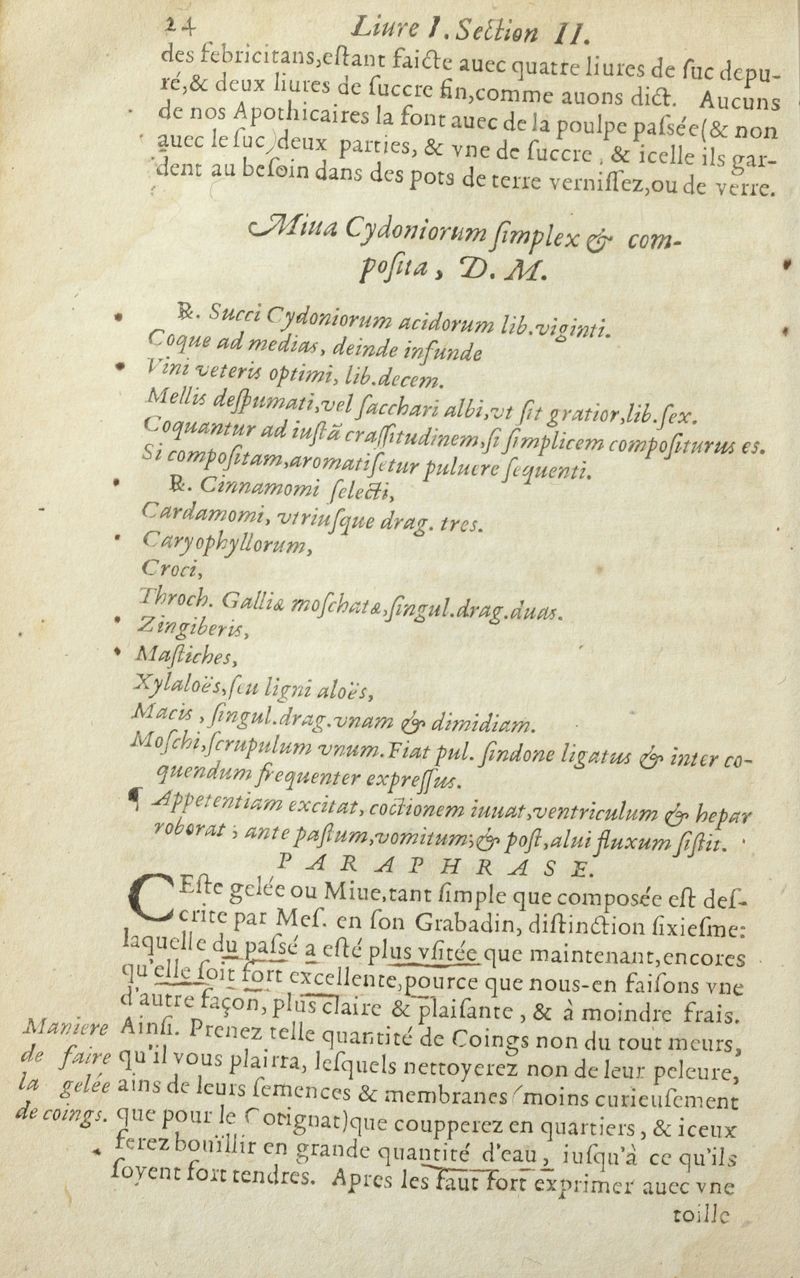 24 Liure I. Section II.
des febricitans,estant faicte auec quatre liures de suc depu-
ré,& deux liures de succre fin,comme auons dict. Aucuns
de nos Apothicaires la font auec de la poulpe passée(& non
auec le suc)deux parties, & vne de succre, & icelle ils gar-
dent au besoin dans des pots de terre vernissez,ou de verre.
Miua Cydoniorum simplex & com-
posita, D. M.
℞. Succi Cydoniorum acidorum lib.viginti.
Coque ad medias, deinde infunde
Vini veteris optimi, lib.decem.
Mellis despumati,vel sacchari albi,vt sit gratior,lib.sex.
Coquantur ad iustã crassitudinem,si simplicem compositurus es.
Si compositam,aromatisetur puluere sequenti.
℞. Cinnamomi selecti,
Cardamomi, vtriusque drag. tres.
Caryophyllorum,
Croci,
Throch. Galliæ moschatæ,singul.drag.duas.
Zingiberis,
Mastiches,
Xylaloës,seu ligni aloës,
Macis, singul.drag.vnam & dimidiam.
Moschi,scrupulum vnum.Fiat pul. sindone ligatus & inter co-
quendum frequenter expressus.
¶ Appetentiam excitat, coctionem iuuat,ventriculum & hepar
roborat; ante pastum,vomitum;& post,alui fluxum sistit.
PARAPHRASE.
CEste gelée ou Miue,tant simple que composée est des-
crite par Mes. en son Grabadin, distinction sixiesme:
laquelle du passé a esté plus vsitée que maintenant,encores
qu'elle soit fort excellente,pource que nous-en faisons vne
d'autre façon, plus claire & plaisante, & à moindre frais.
Ainsi. Prenez telle quantité de Coings non du tout meurs,
qu'il vous plairra, lesquels nettoyerez non de leur peleure,
ains de leurs semences & membranes (moins curieusement
que pour le Cotignat)que coupperez en quartiers, & iceux
ferez bouillir en grande quantité d'eau, iusqu'à ce qu'ils
soyent fort tendres. Apres les faut fort exprimer auec vne
toille
Maniere
de faire
la gelée
de coings.